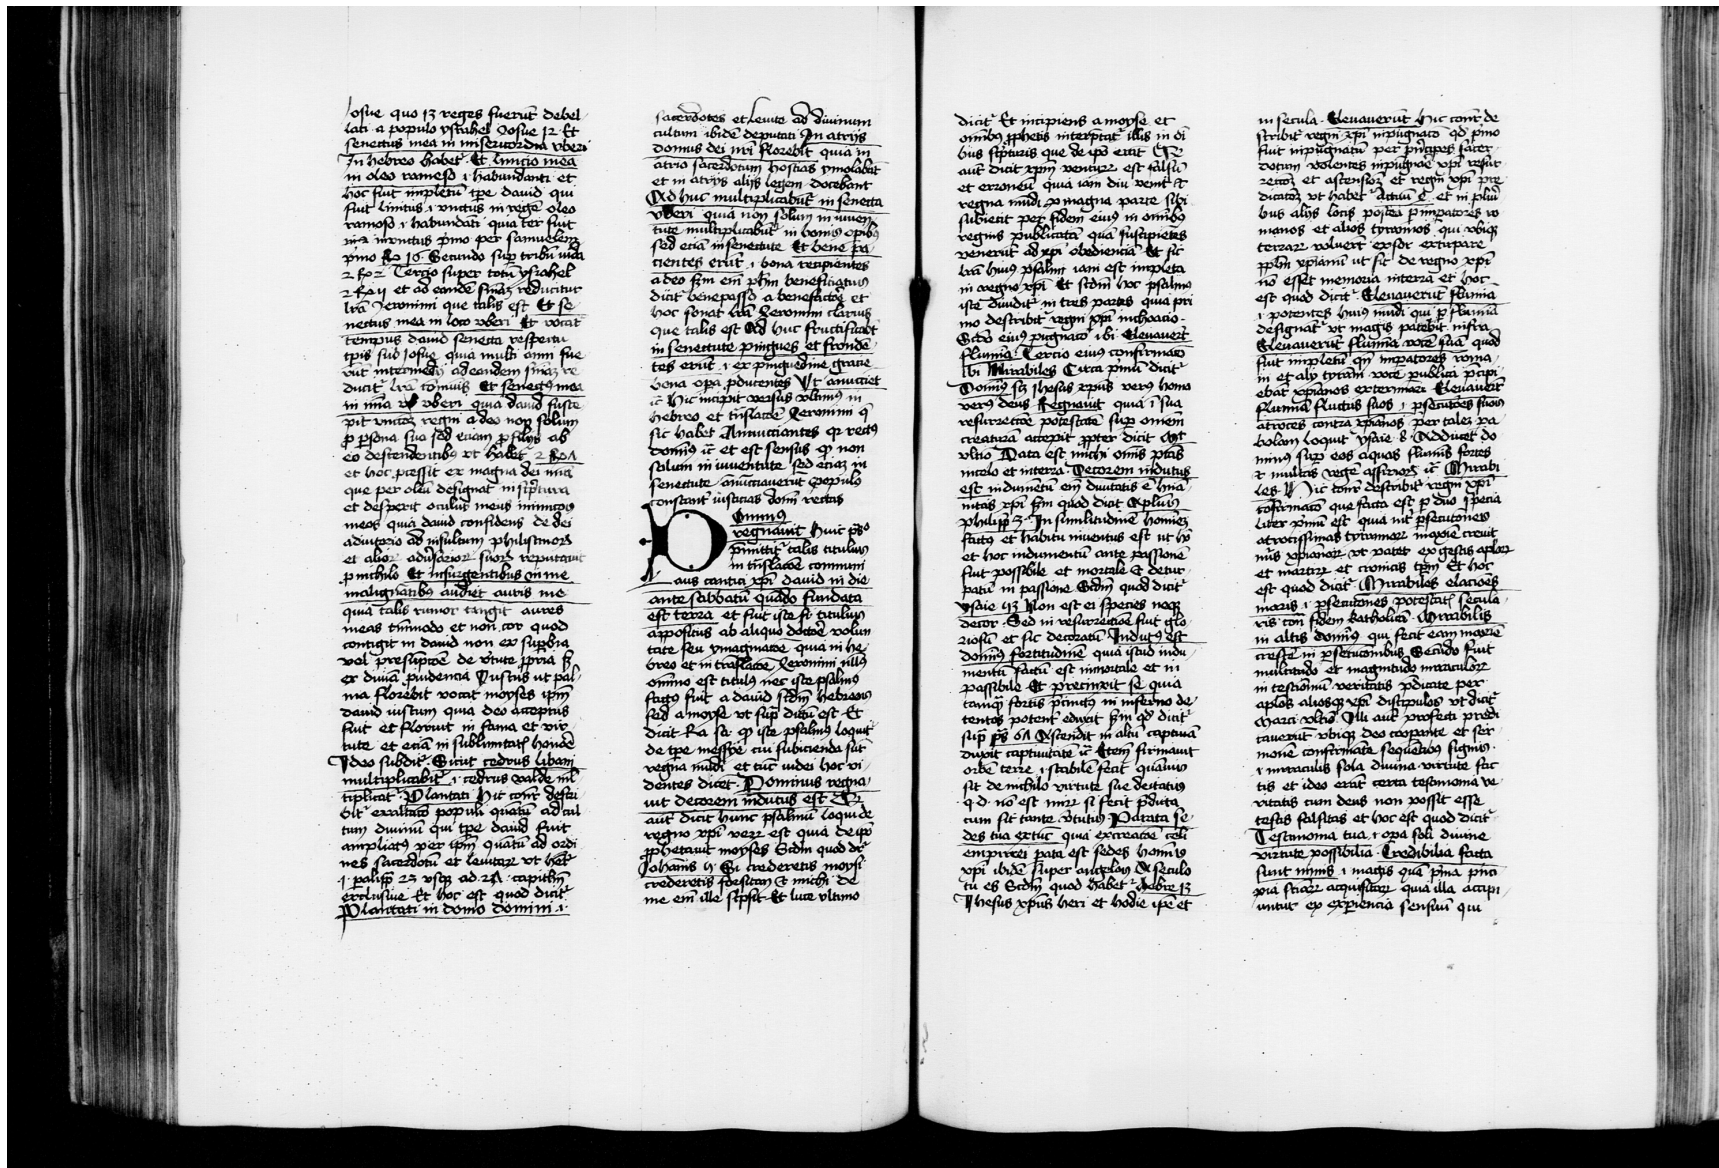 Josue quo 13 reges fuerūt debel-
lati a populo ysrahel Josue 12 Et
senectus mea in misericordia vberi
In hebreo habet̄ Et linicio mea
in oleo ramoso i habundanti et
hoc fuit impletū tp̄e david qui
fuit linitus i vnctus in regē oleo
ramoso i habundāti quia ter fuit
inunctus pͥmo per samuelem
pͥmo Re 16 Secundo suꝑ tribū iuda
2 Re 2 Tercio super totū ysrahel
2 Re ii et ad eandē sniāꝫ reducitur
lr̄a Jeronimi que talis est Et se-
nectus mea in loco vberi Et vocat
tempus david senecta respectu
tꝑis sub Josue quia multi anni flue-
rūt intermedii ad eandem sniāꝫ re
ducit̄ lr̄a cōmunis Et senectꝰ mea
in mīa vberi quia david susce
pit vnctōꝫ regni a deo non solum
ꝓ ꝑsona sua sed etiam ꝓ filiis ab
eo descendentibꝰ vt habet̄ 2 Re 7
et hoc ꝓcessit ex magna dei mīa
que per oleū designat̄ in scͥptura
et despexit oculus meus inimicos
meos quia david confidens de dei
adiutorio ad insultum philistinoꝝ
et alioꝝ adūsarioꝝ suoꝝ reputauit
ꝓ nichilo Et insurgentibus in me
malignātibꝰ audiet auris mea
quia talis rumor tangit aures
meas tm̄modo et non cor quod
contigit in david non ex suꝑbia
vel presūptōe de v̄tute ꝓpria sꝫ
ex diuīa ꝓuidencia Iustus vt pal-
ma florebit vocat moyses ip̄m
david iustum quia deo acceptus
fuit et floruit in fama et vir-
tute et eciā in sublimitate honoris
Ideo subdit̄ Sicut cedrus libani
multiplicabit̄ i cedrus valde ml̄-
tiplicat̄ Plantati Hic conṙ descri
bit̄ exaltatō populi quātū ad cul
tum diuinū qui tp̄e david fuit
ampliatꝰ per ip̄m quātū ad ordi
nes sacerdotū et leuitaꝝ vt habet̄
1 paliꝑ 23 vsqꝫ ad 27 capitlm̄
exclusiue Et hoc est quod dicit̄
Plantati in domo domini i
sacerdotes et leuite ad diuinum
cultum ibidē deputati In atriis
domus dei nr̄i florebūt quia in
atrio sacerdotum hostias ymolabāt
et in atriis aliis legem docebant
Ad huc multiplicabūt̄ in senecta
vberi quia non solum in iuuen
tute multiplicabūt̄ in bonis opibꝰ
sed eciā in senectute Et bene pa-
cientes erūt i bona recipientes
a deo sm̄ em̄ ph̄m beneficiatus
dicit̄ benepassꝰ a benefactore et
hoc sonat lr̄a Jeronimi clarius
que talis est Ad huc fructificabūt
in senectute pingues et fronden-
tes erūt i ex pinguedine gracie
bona opa ꝓducentes Vt anūciet
ic̄ Hic incipit versus vltimus in
hebreo et tn̄slacōe Jeronimi q̄
sic habet Annuncciantes qꝛ rectꝰ
dominꝰ ic̄ et est sensus qꝫ non
solum in iuuentute sed eciaꝫ in
senectute anūciauerūt populo
constant̄ iusticias domī rectas
Dominꝰ
regnauit Huic ps̄o
ꝓmittit̄ talis titulus
in tn̄slacōe communi
Laus cantici xp̄i david in die
ante sabbatū quādo fundata
est terra et fuit iste sc̄ titulus
appositus ab aliquo doctore volun
tate seu ymaginatōe quia in he-
breo et in trāslatōe Jeronimi nllꝰ
omnino est titulꝰ nec iste psalmꝰ
factꝰ fuit a david sc̄dm hebreos
sed a moyse vt supͣ dictū est Et
dicit Ra sa qꝫ iste psalmꝰ loquit̄
de tp̄e messye cui subicienda sūt
regna mūdi et tūc videi hoc vi-
dentes dicēt Dominus regna-
uit decorem indutus est Qꝛ
aut̄ dicit hunc psalmū loqui de
regno xp̄i veꝝ est quia de ip̄o
ꝓphetauit moyses Scd̄m quod dr̄
Johānis 5 Si crederetis moysi
crederetis forsitan et michi de
me em̄ ille scͥpsit Et luce vltimo
dicit̄ Et incipiens a moyse et
omībꝰ ꝓphetis interp̄tat̄ illis in oī
bus scͥpturis que de ip̄o erāt Qꝛ
aut̄ dicit xpm̄ venturꝫ est falsū
et erroneū quia iam diu venit et
regna mūdi ꝓ magna parte sibi
subiecit per fidem eius in omībꝰ
regnis publicatā quā suscipiētes
venerūt ad xp̄i obedienciā Et sic
lr̄a huiꝰ psalmi iam est impleta
in regno xp̄i Et sc̄dm hoc psalmꝰ
iste diuidit̄ in tres partes quia pri
mo describit̄ regni xp̄i inchoacio
Scd̄o eiꝰ pugnatō ibi Eleuauert̄
flumīa Tercio eiꝰ confirmatō
Ibi Mirabiles Circa pͥmū dicit̄
Dominꝰ scꝫ ihesus xp̄us verꝰ homo
verꝰ deus Regnauit quia i sua
resurrectōe potestatē suꝑ omnem
creaturā accepit ꝓpter dicit Mt̄
vltio Data est michi omīs ptās
in celo et in terra Decorem indutus
est indumētū em̄ diuitatis ē huīa
nitas xp̄i sm̄ quod dicit Apl̄us
philipp̄ 2 In similitudinē hominꝫ
factꝰ et habitu inuentus est ut hō
et hoc indumentū ante passionē
fuit possibile et mortale et detur-
patū in passione Scd̄m quod dicit̄
ysaie 53 Non est ei species neqꝫ
decor Sed in resurrectione fuit glo-
riosū et sic decoratū Indutꝰ est
dominꝰ fortitudinē quia istud indu-
mentū factū est inmortale et in
passibile Et precinxit se quia
tanqꝫ fortis ꝓcinctꝰ in inferno de-
tentos potent̄ eduxit sm̄ qd̄ dicit̄
supͣ ps̄ 67 Ascendit in altū captiuā
duxit captiuitatē ic̄ Etem̄ firmauit
orbē terre i stabilē fecit quāuis
sit de nichilo virtute sue deitatis
q d nō est mirꝫ si fecit p̄dicta
cum sit tante v̄tutis Parata se-
des tua ex tūc quia ex creatōe celi
empirrei pata est sedes hominis
xp̄i ibidē super angelos A seculo
tu es Scd̄m quod habet̄ hebre 13
Ihesus xp̄us heri et hodie ip̄e et
in secula Eleuauerūt Hic cont̄ de
scribit̄ regni xp̄i inpugnatō qd̄ pͥmo
fuit inpugnatū per pͥncipes sacer-
dotum volentes inpugnare xp̄i resur
rectōꝫ et ascensiōꝫ et regni xp̄i pre
dicatōꝫ vt habet̄ actuū 4 et in plūi
bus aliis locis postea p̄ imꝑatores ro
manos et alios tyrannos qui vbiqꝫ
terraꝝ voluert̄ expso̅r exturpare
ppl̄m xp̄ianū ut sic de regno xp̄i
nō esset memoria in terra et hoc
est quod dicit̄ Eleuauerūt flumīa
i potentes huiꝰ mūdi qui ꝑ flumīa
designāt̄ vt magis patebit infra
Eleuauerūt flumīa vocē suā quod
fuit inpletū qn̄ imꝑatores roma-
ni et alii tyrāni voce publica pͥcipi
ebāt xp̄ianos exterminari Eleuauerūt
flumīa fluctus suos i ꝑsecutōes suos
atroces contra xp̄ianos per talez pa
bolam loquit̄ ysaie 8 Adducet do
minus suꝑ eos aquas fluminis fortes
et multas regē assirioꝝ ic̄ Mirabi
les Hic conṙ describit̄ regni xp̄i
cōfirmatō que facta est ꝑ duo specia
liter pͥmū est quia int̄ ꝑsecutiones
atrocissimas tyrannoꝝ maxie creuit
nūs xp̄ianoꝝ vt patet ex gestis aploꝝ
et martirꝫ et cronicis tꝑm Et hoc
est quod dicit̄ Mirabiles elaciōēs
maris i ꝑsecutōnes potestat̄ secula-
ris con̄ fidem katholicā Mirabilis
in altis dominꝰ qui fecit eam maxīe
cresce̅ in ꝑsecutōnibus Secūdo fuit
multitudo et magnitudo miraculoꝝ
in testimōiū veritatis p̄dicate per
aplōs aliosqꝫ xp̄i discipulos vt dicit̄
Marci vltio Illi aut̄ profecti predi
cauerūt vbiqꝫ deo cooꝑante et ser-
monē confirmāte sequētibus signis
i miraculis sola diuina virtute fac
tis et ideo erāt certa testimonia ve
ritatis cum deus non possit esse
testis falsitatis et hoc est quod dicit̄
Testimonia tua i opa soli diuine
virtute possibilia Credibilia facta
sunt nimis i magis quā pͥma pͥnci
pia sciaꝝ acquisitaꝝ quia illa accipi
untur ex experiencia sensuū qui